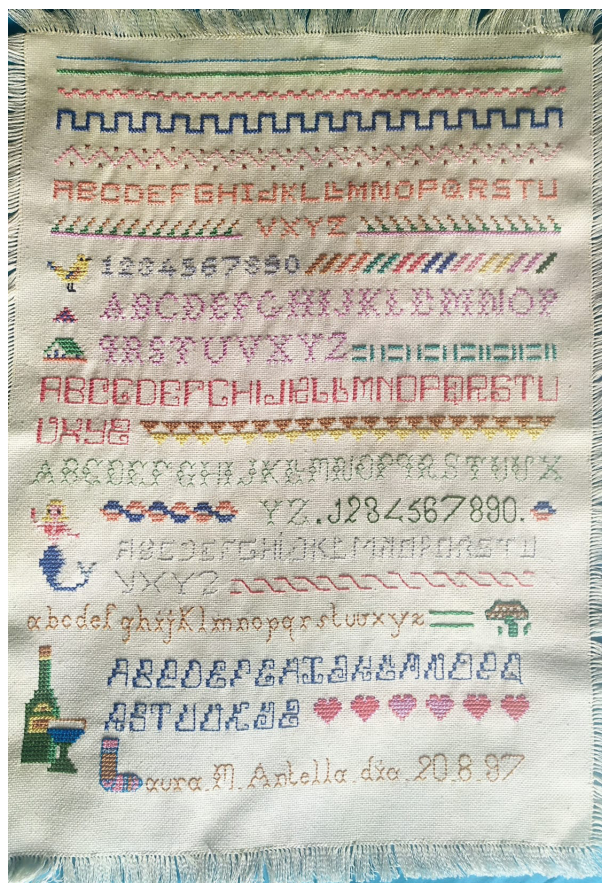 ABCDEFGHIJKLLLMMOPQRSTU
VXYZ
1234567890
ABCDEFGHIJKLLLMNOP
QRSTUVXYZ
ABCDEFGHIJKLLLMNOPQRSTU
VXYZ
ABCDEFGHIJKLMNOPQRSTUVX
YZ.1234567890.
ABCDEFGHIJKLMNOPQRSTU
VXYZ
abcdefghijKlmnopqrstuvxyz
ABCDEFGHIJKLMNOPQ
RSTUVXYZ
Laura.M.Antella.día.20.8.97